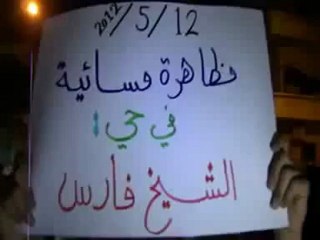 2012/5/12
مظاهرة مسائية
في حي :
الشيخ فارس